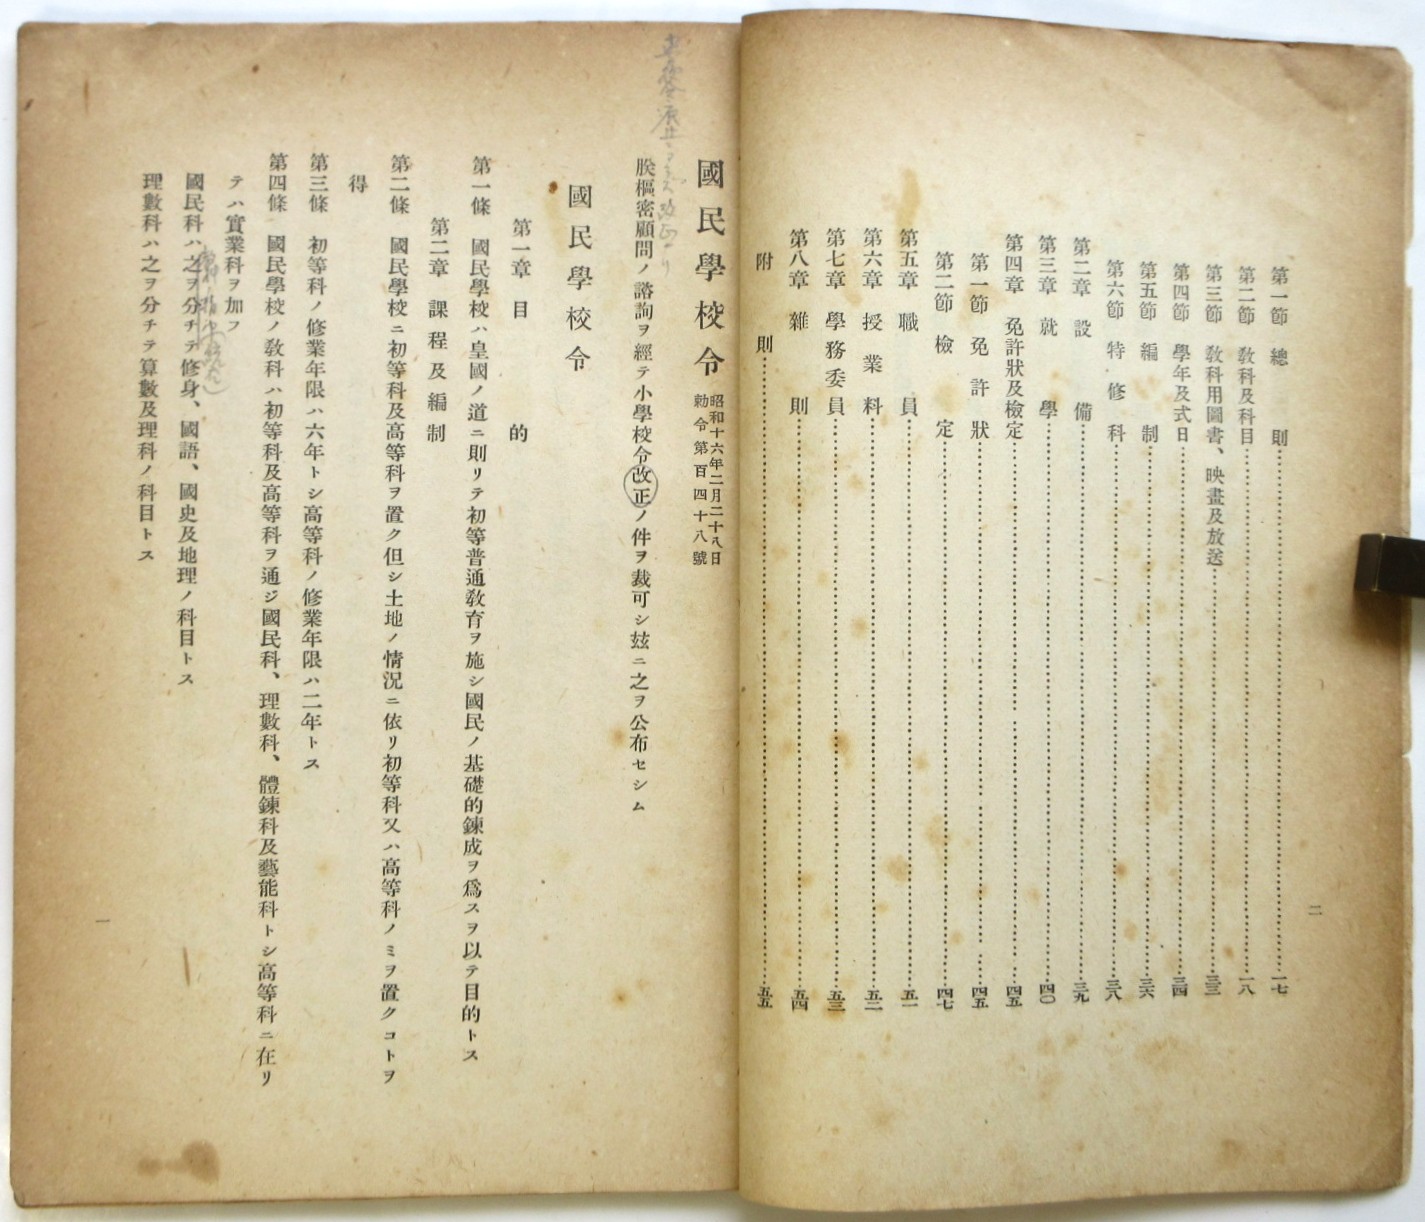 二
第一節 總則……一七
第二節 教科及科目……一八
第三節 教科用圖書、映畫及放送……三三
第四節 學年及式日……三四
第五節 編制……三六
第六節 特修科……三八
第二章 設備……三九
第三章 就學……四〇
第四章 免許狀及檢定……四五
第一節 免許狀……四五
第二節 檢定……四七
第五章 職員……五一
第六章 授業料……五二
第七章 學務委員……五三
第八章 雜則……五四
附則……五五
國民學校令
昭和十六年二月二十八日
勅令第百四十八號
朕樞密顧問ノ諮詢ヲ經テ小學校令改正ノ件ヲ裁可シ玆ニ之ヲ公布セシム
國民學校令
第一章 目的
第一條 國民學校ハ皇國ノ道ニ則リテ初等普通敎育ヲ施シ國民ノ基礎的鍊成ヲ爲スヲ以テ目的トス
第二章 課程及編制
第二條 國民學校ニ初等科及高等科ヲ置ク但シ土地ノ情況ニ依リ初等科又ハ高等科ノミヲ置クコトヲ
得
第三條 初等科ノ修業年限ハ六年トシ高等科ノ修業年限ハ二年トス
第四條 國民學校ノ敎科ハ初等科及高等科ヲ通ジ國民科、理數科、體鍊科及藝能科トシ高等科ニ在リ
テハ實業科ヲ加フ
國民科ハ之ヲ分チテ修身、國語、國史及地理ノ科目トス
理數科ハ之ヲ分チテ算數及理科ノ科目トス
一